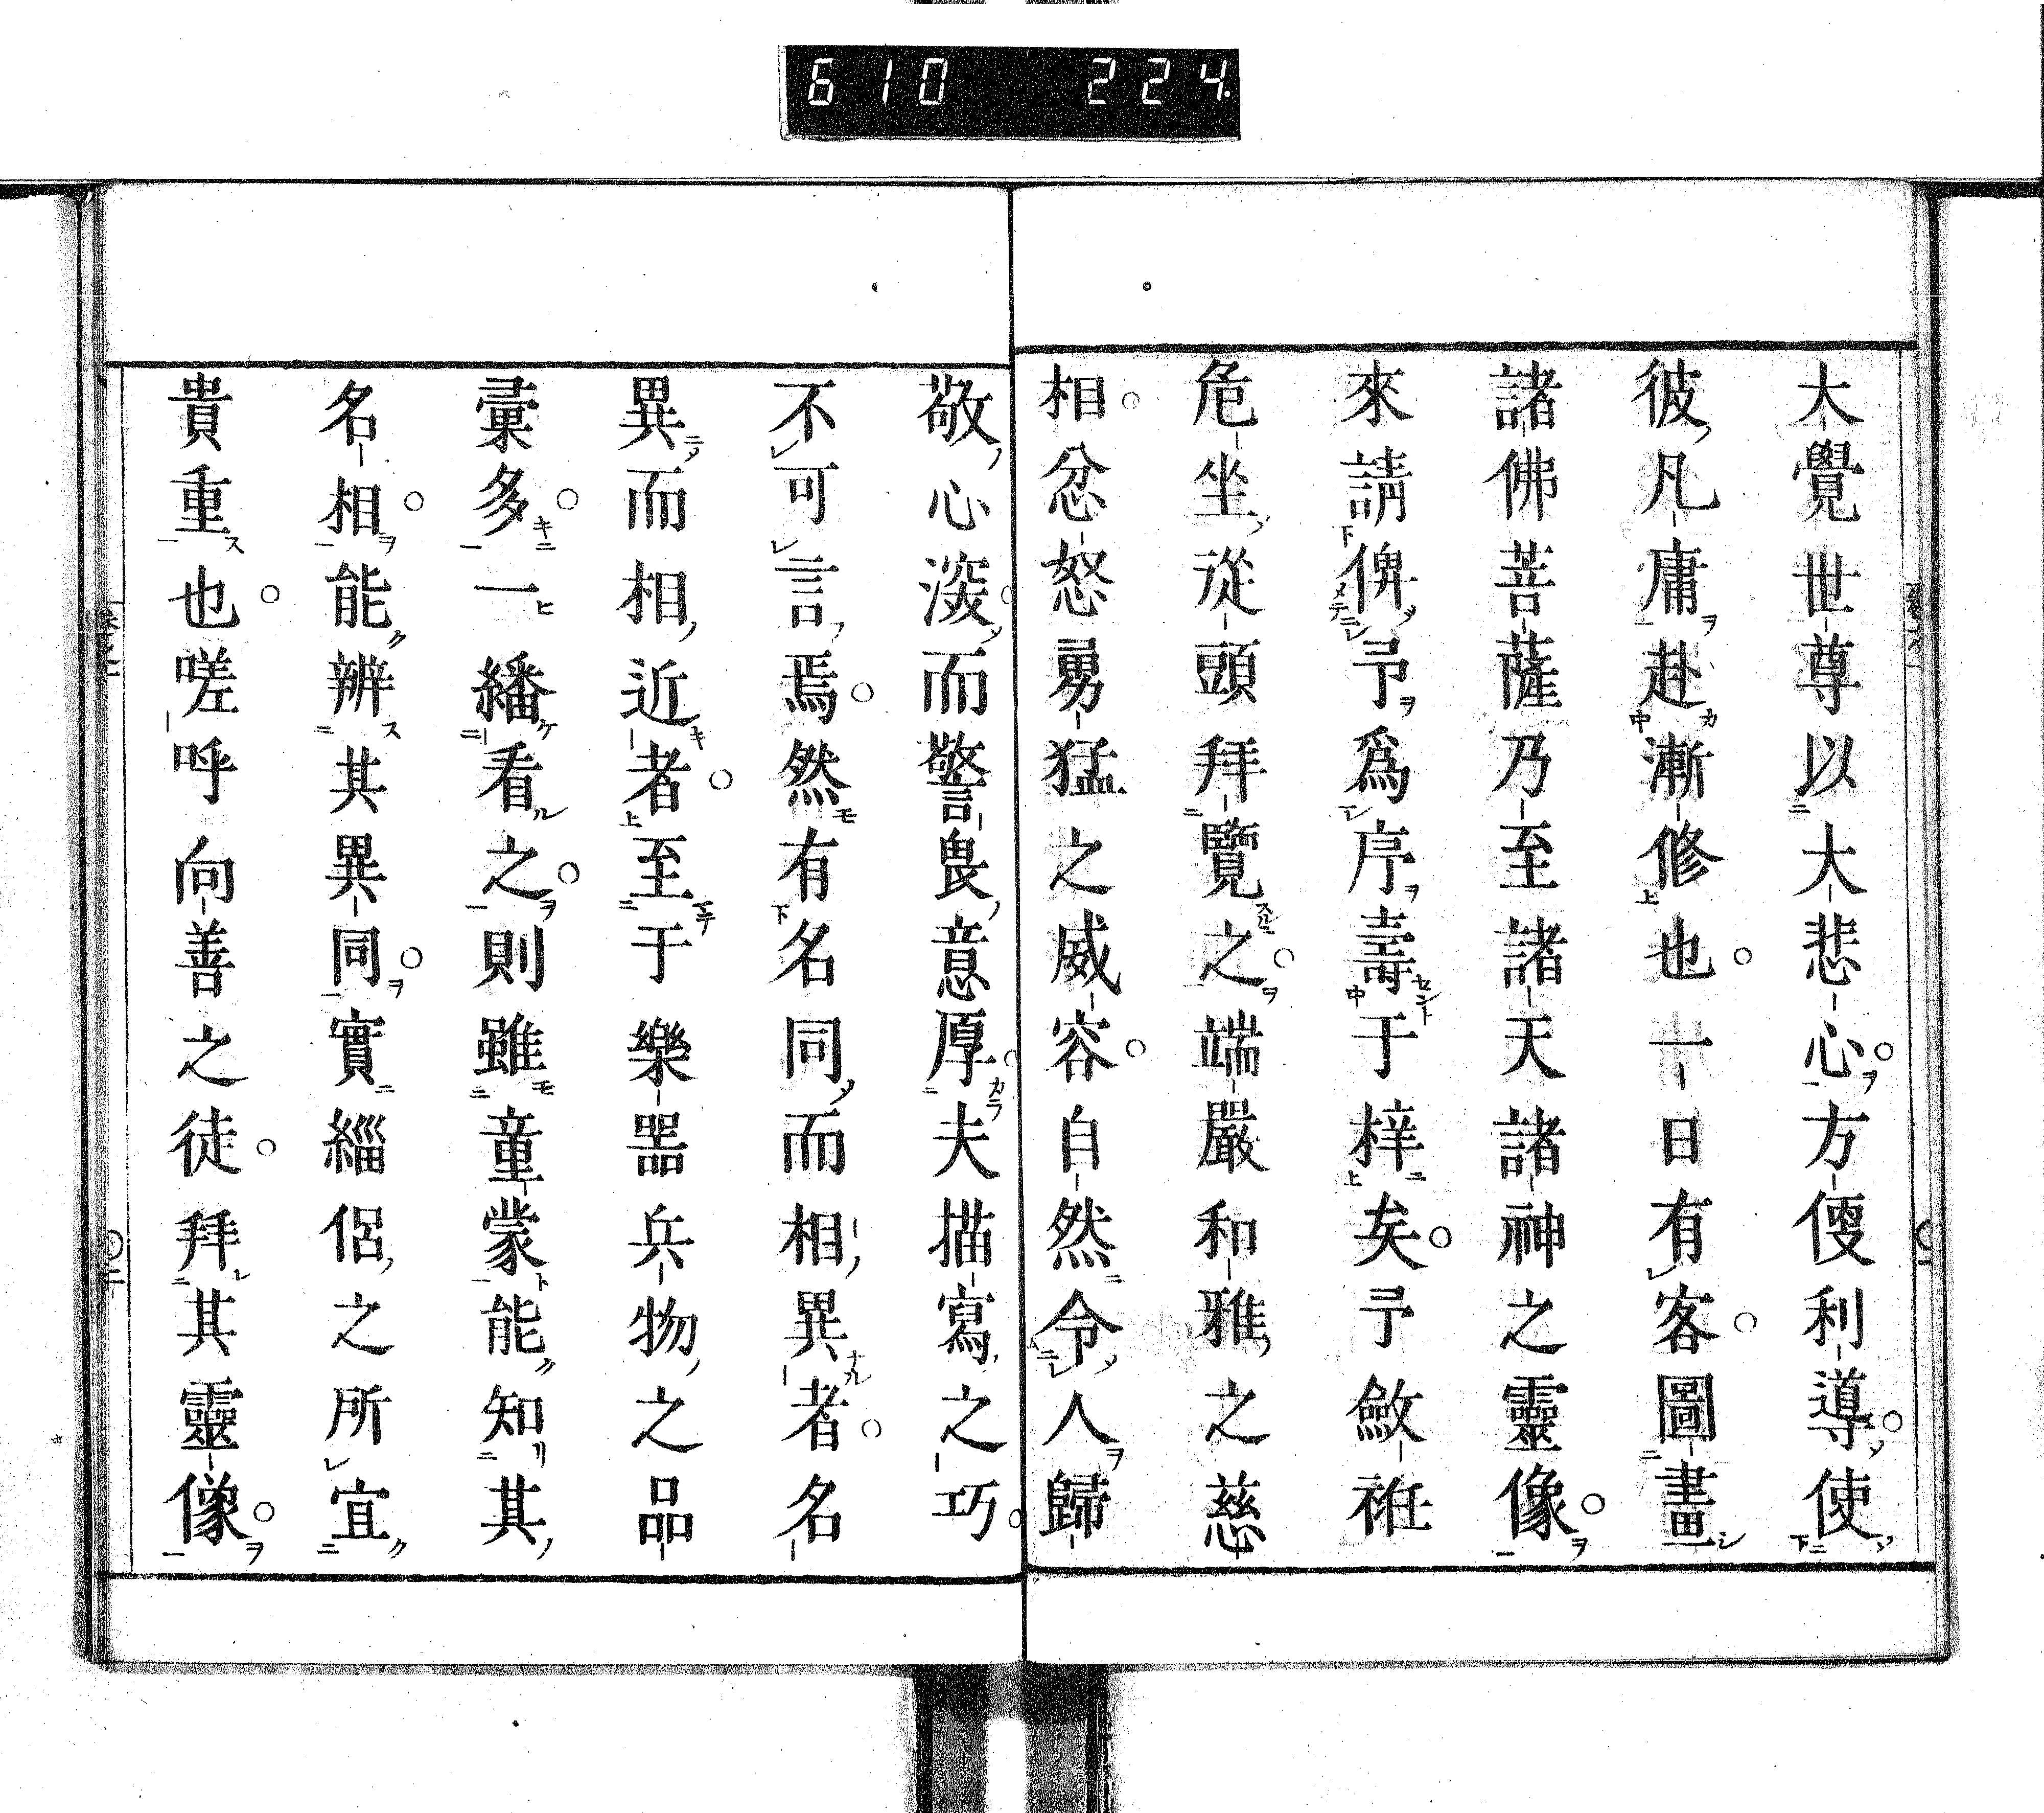 610 224
大覺世尊以大悲心方便利導使
彼凡庸赴漸修也一日有客圖畫
諸佛菩薩乃至諸天諸神之靈像
來請俾予爲序壽于梓矣予斂袵
危坐從頭拜覽之端嚴和雅之慈
相忿怒勇猛之威容自然令人歸
敬心深而警畏意厚夫描寫之巧
不可言焉然有名同而相異者名
異而相近者至于樂器兵物之品
彙多一繙看之則雖童蒙能知其
名相能辨其異同實緇侶之所宜
貴重也嗟呼向善之徒拜其靈像